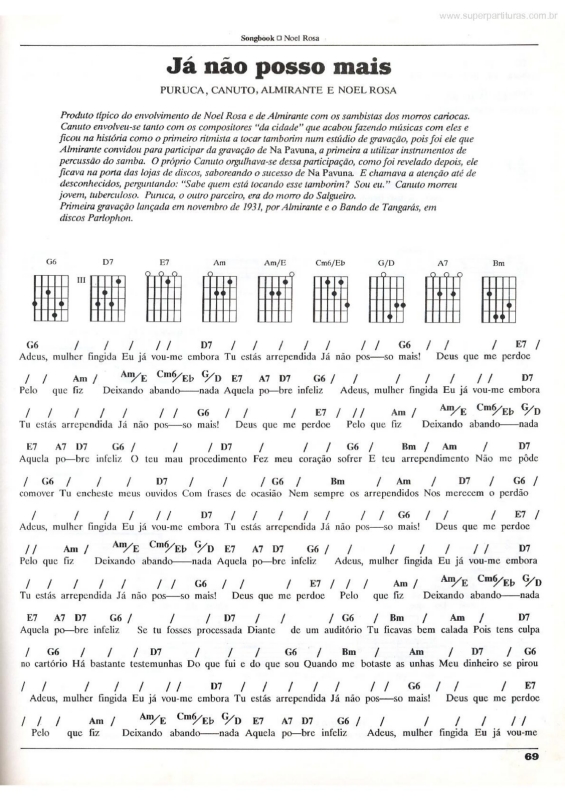 www.superpartituras.com.br
Songbook □ Noel Rosa
Já não posso mais
PURUCA, CANUTO, ALMIRANTE E NOEL ROSA
Produto típico do envolvimento de Noel Rosa e de Almirante com os sambistas dos morros cariocas.
Canuto envolveu-se tanto com os compositores "da cidade" que acabou fazendo músicas com eles e
ficou na história como o primeiro ritmista a tocar tamborim num estúdio de gravação, pois foi ele que
Almirante convidou para participar da gravação de Na Pavuna, a primeira a utilizar instrumentos de
percussão do samba. O próprio Canuto orgulhava-se dessa participação, como foi revelado depois, ele
ficava na porta das lojas de discos, saboreando o sucesso de Na Pavuna. E chamava a atenção até de
desconhecidos, perguntando: "Sabe quem está tocando esse tamborim? Sou eu." Canuto morreu
jovem, tuberculoso. Puruca, o outro parceiro, era do morro do Salgueiro.
Primeira gravação lançada em novembro de 1931, por Almirante e o Bando de Tangarás, em
discos Parlophon.
G6 D7 E7 Am Am/E Cm6/E♭ G/D A7 Bm
III
G6 / / / / / D7 / / / / / / / G6 / / / E7 /
Adeus, mulher fingida Eu já vou-me embora Tu estás arrependida Já não pos—so mais! Deus que me perdoe
/ / Am / Am/E Cm6/E♭ G/D E7 A7 D7 G6 / / / / / / / D7
Pelo que fiz Deixando abando—nada Aquela pobre infeliz Adeus, mulher fingida Eu já vou-me embora
/ / / / / / / G6 / / / E7 / / / Am / Am/E Cm6/E♭ G/D
Tu estás arrependida Já não pos—so mais! Deus que me perdoe Pelo que fiz Deixando abando—nada
E7 A7 D7 G6 / / / D7 / / / G6 / Bm / Am / D7
Aquela po—bre infeliz O teu mau procedimento Fez meu coração sofrer E teu arrependimento Não me pôde
/ G6 / / / D7 / / / G6 / Bm / Am / D7 / G6
comover Tu encheste meus ouvidos Com frases de ocasião Nem sempre os arrependidos Nos merecem o perdão
/ / / / / / / D7 / / / / / / / G6 / / / E7 /
Adeus, mulher fingida Eu já vou-me embora Tu estás arrependida Já não pos—so mais! Deus que me perdoe
/ / Am / Am/E Cm6/E♭ G/D E7 A7 D7 G6 / / / / / / / D7
Pelo que fiz Deixando abando—nada Aquela po—bre infeliz Adeus, mulher fingida Eu já vou-me embora
/ / / / / / / G6 / / / E7 / / / Am / Am/E Cm6/E♭ G/D
Tu estás arrependida Já não pos—so mais! Deus que me perdoe Pelo que fiz Deixando abando—nada
E7 A7 D7 G6 / / / D7 / / / G6 / Bm / Am / D7
Aquela po—bre infeliz Se tu fosses processada Diante de um auditório Tu ficavas bem calada Pois tens culpa
/ G6 / / / D7 / / / G6 / Bm / Am / D7 / G6
no cartório Há bastante testemunhas Do que fui e do que sou Quando me botaste as unhas Meu dinheiro se pirou
/ / / / / / / D7 / / / / / / / G6 / / / E7
Adeus, mulher fingida Eu já vou-me embora Tu estás arrependida Já não pos—so mais! Deus que me perdoe
/ / / Am / Am/E Cm6/E♭ G/D E7 A7 D7 G6 / / / / / / /
Pelo que fiz Deixando abando—nada Aquela po—bre infeliz Adeus, mulher fingida Eu já vou-me
69